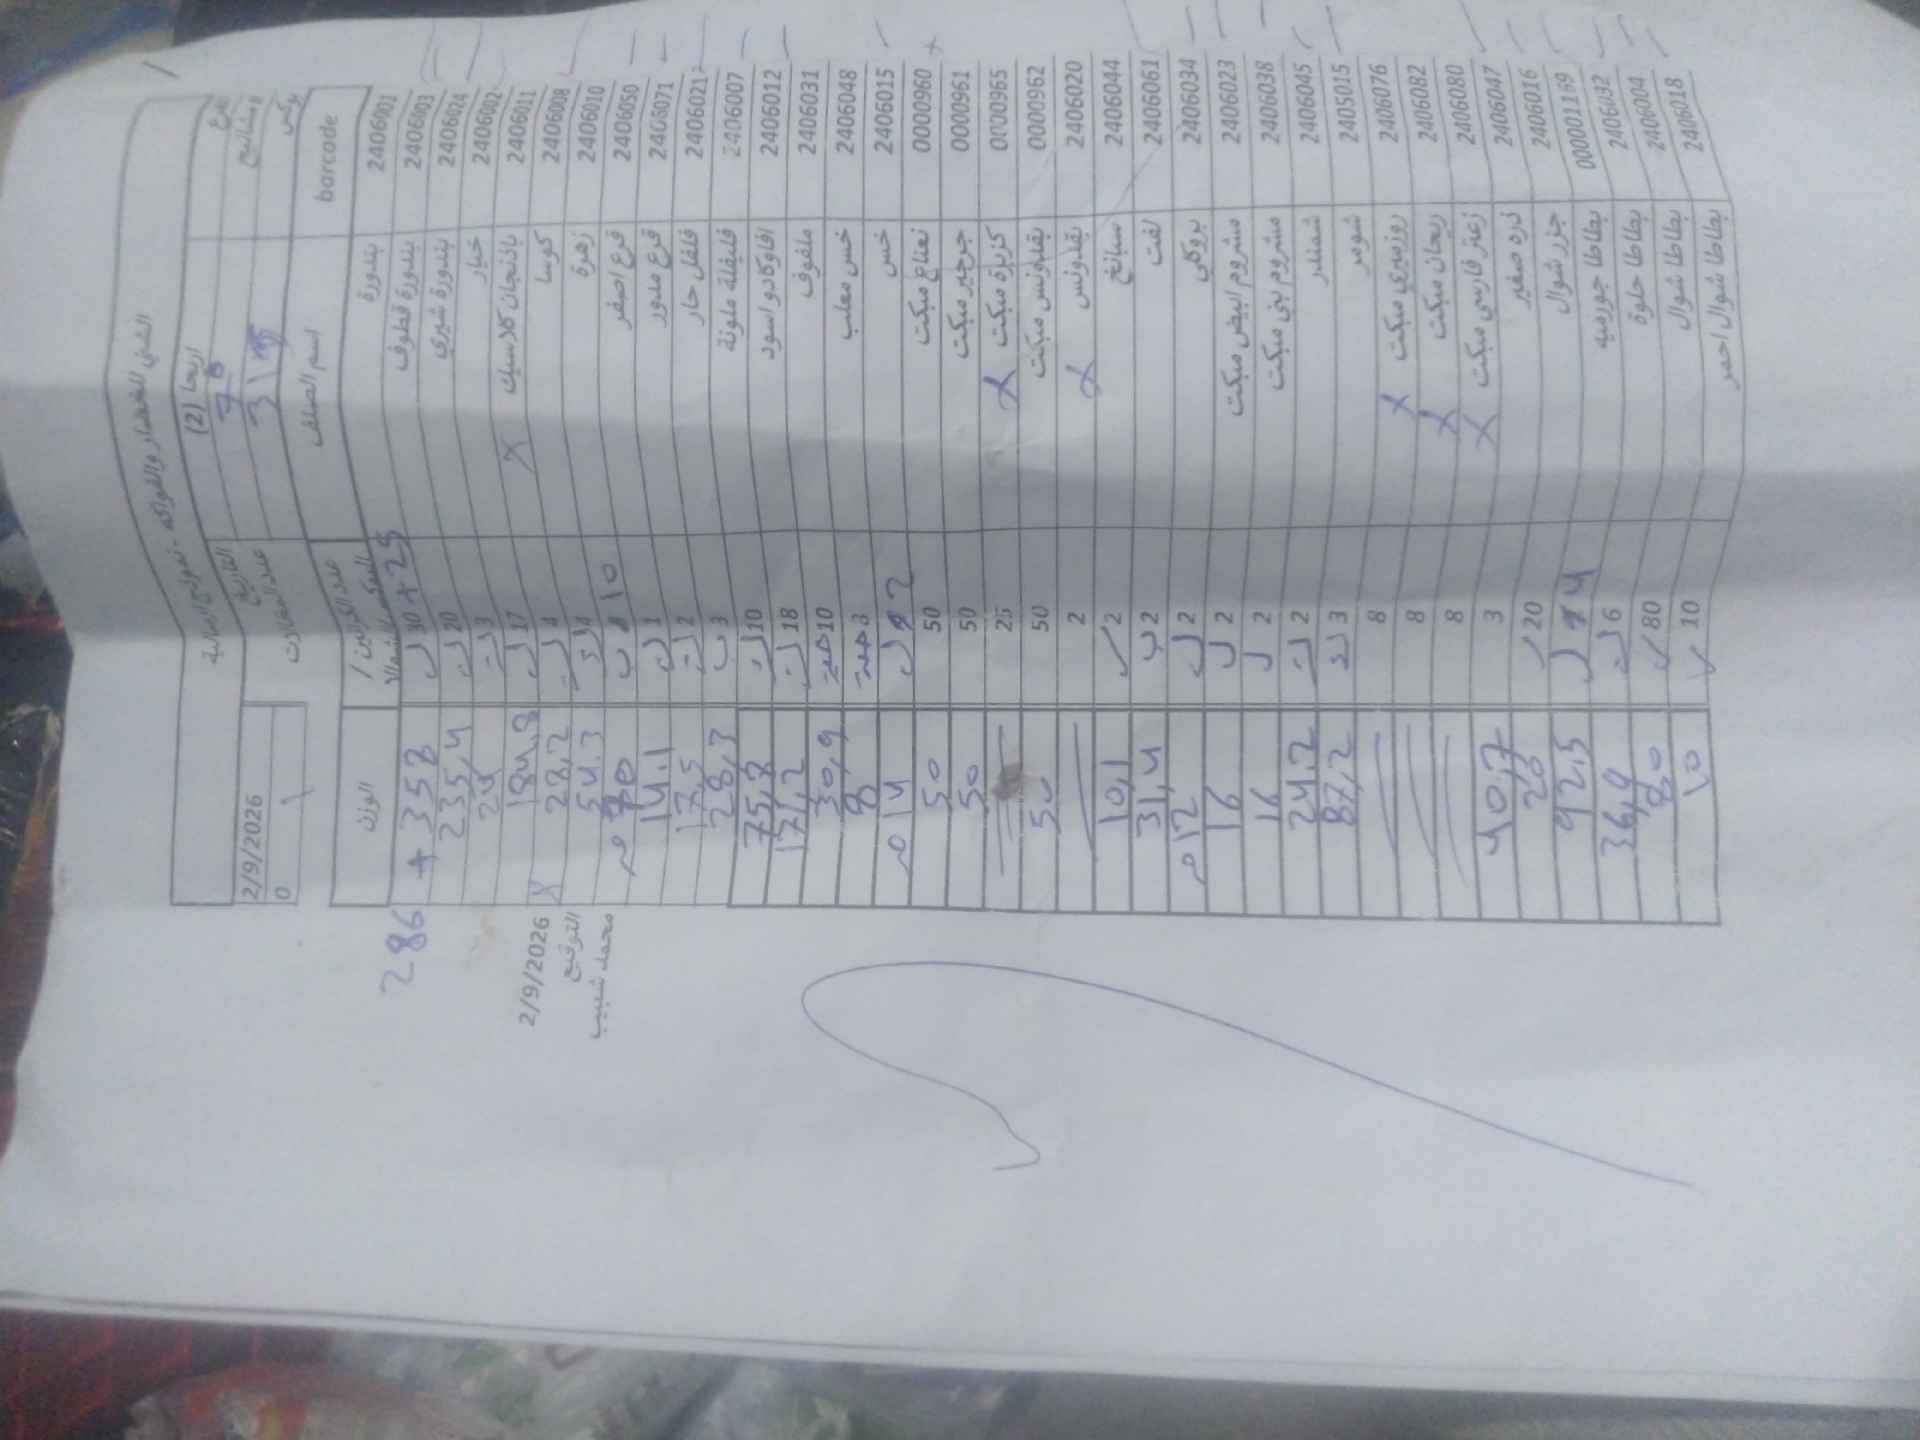 الشني للخضار والفواكه - نموذج ارسالية
اريحا (2)
التاريخ 2/9/2026
مشاتيح 315
عدد العبوات 0
barcode اسم الصنف عدد الكراتين / الوزن
2406001 بندورة 30 + 25 358 + 286
2406003 بندورة قطوف 20 235,4
2406024 بندورة شيري 3 24
2406002 خيار 17 184,8
2406011 باذنجان كلاسيك X 4 28,2
2406008 كوسا 4 54.3
2406010 زهرة 10
2406050 قرع اصفر 1 14.1
2406071 قرع مدور 2 17,5
2406021 فلفل حار 3 28,3
2406007 فليفلة ملونة 10 75,8
2406012 افاوكادو اسود 18 171,2
2406031 ملفوف 10 30,9
2406048 خس معلب 8 8
2406015 خس 2 14
0000960 نعناع مبكت 50 50
0000961 جرجير مبكت 50 50
0000965 كزبرة مبكت X 25
0000962 بقدونس مبكت 50 50
2406020 بقدونس X 2
2406044 سبانخ 2 10,1
2406061 لفت 2 31,4
2406034 بروكلي 2 12
2406023 مشروم ابيض مبكت 2 16
2406038 مشروم بني مبكت 2 16
2406045 شمندر 2 24.2
2405015 شومر 3 87,2
2406076 روزميري مبكت X 8
2406082 ريحان مبكت X 8
2406080 زعتر فارسي مبكت X 8
2406047 ذره صغير 3 40,7
2406016 جزر شوال 20 20
000001169 بطاطا جورميه 4 92,5
2406032 بطاطا حلوة 6 36,9
2406004 بطاطا شوال 80 80
2406018 بطاطا شوال احمر 10 10
2/9/2026
التوقيع
محمد شبيب